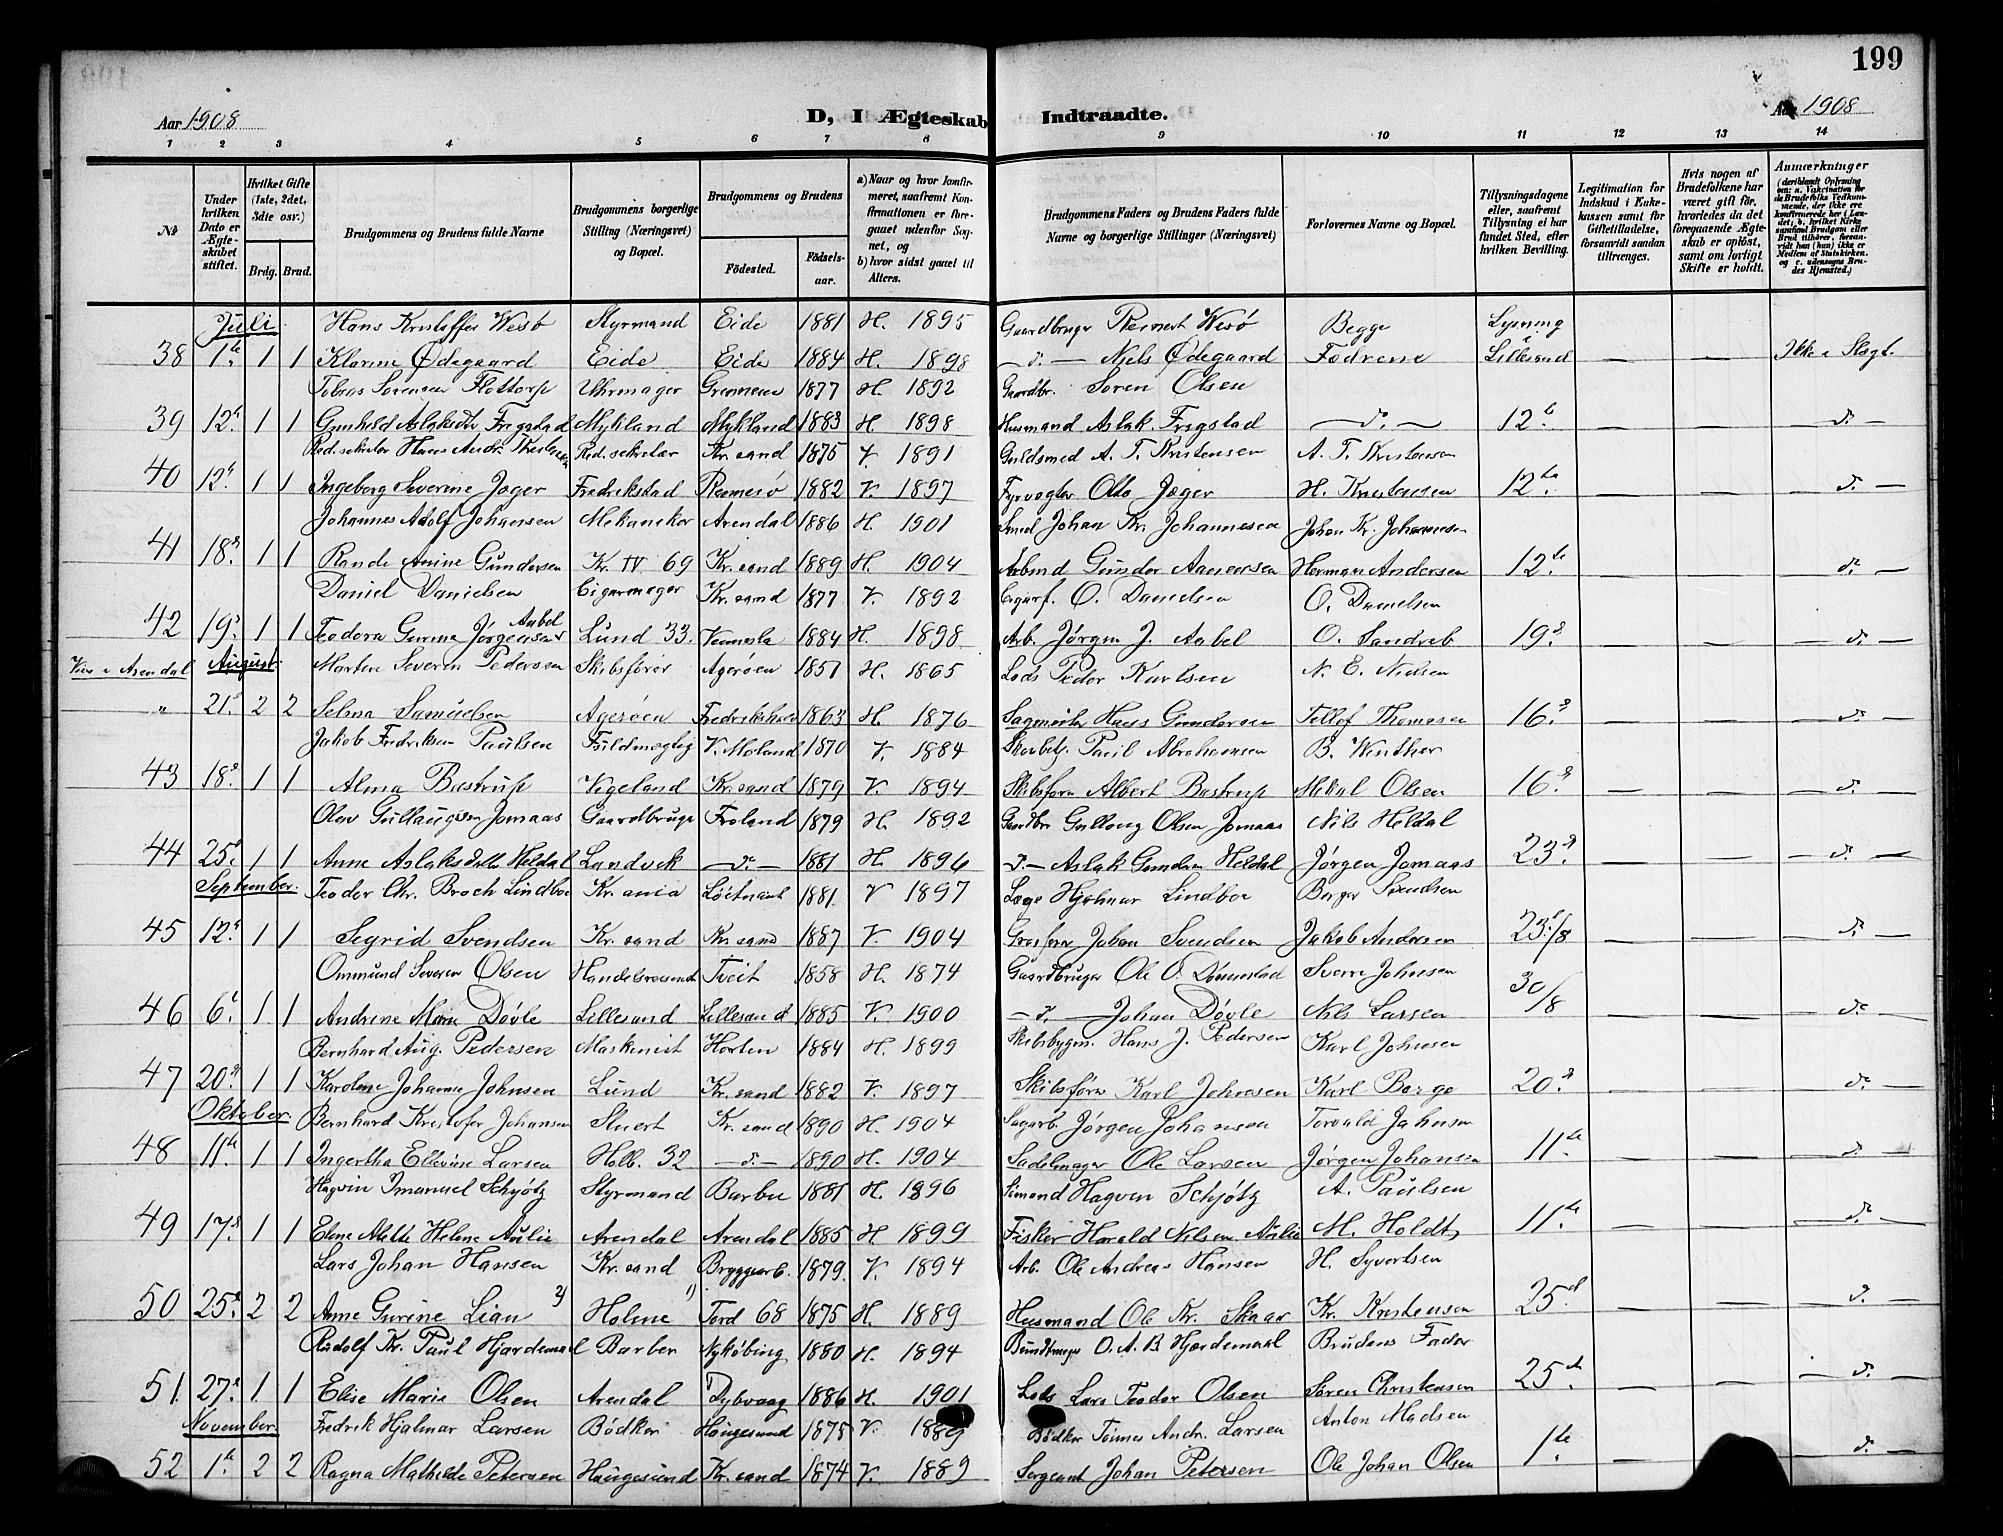 199
Aar 1908
D, I Ægteskab Indtraadte.
Aar 1908
1 2 3 4 5 6 7 8 9 10 11 12 13 14
No
Under hvilken Dato er Ægteskabet stiftet.
Hvilket Gifte (1ste, 2det, 3die osv.)
Brdg. Brud.
Brudgommens og Brudens fulde Navne
Brudgommens borgerlige Stilling (Næringsvei) og Bopæl.
Brudgommens og Brudens
Födested. Födselsaar.
a) Naar og hvor konfirmeret, saafremt Konfirmationen er foregaaet udenfor Sognet, og
b) hvor sidst gaaet til Alters.
Brudgommens Faders og Brudens Faders fulde Navne og borgerlige Stillinger (Næringsvei)
Forlovernes Navne og Bopæl.
Tillysningsdagene eller, saafremt Tillysning ei har fundet Sted, efter hvilken Bevilling.
Legitimation for Indskud i Enkekassen samt for Giftetilladelse, forsaavidt saadan tiltrænges.
Hvis nogen af Brudefolkene har været gift før, hvorledes da det foregaaende Ægteskab er oplöst, samt om lovligt Skifte er holdt.
Anmærkninger
(deriblandt Oplysning om: a. Vakcination for de Brudefolks Vedkommende, der ikke ere konfirmerede her i Landet; b. hvilket Kirkesamfund Brudgom eller Brud tilhører, forsaavidt han (hun) ikke er Medlem af Statskirken, og c. udensogns Brudes Hjemsted.)
Juli Hans Kristoffer Wesö Styrmand Eide 1881 H. 1895 Gaardbruger Wesö Begge Lysning i
38 1te 1 1 Klarine Ødegaard Eide Eide 1884 H. 1898 — d. — Niels Ødegaard Fædrene Lillesand — — Ikke i Slægt.
Tobias Sørensen Flottorp Uhrmager 1877 H. 1892 Gaardbr. Søren Olsen
39 12te 1 1 Gunhild Aslaksdtr Frigstad Mykland Mykland 1883 H 1898 Husmand Aslak Frigstad — d. — 12te — — — d. —
Red. sekretær Hans Andr. Red. sekretær Kr. sand 1875 V. 1891 Guldsmed A. T. Kristensen A. T. Kristensen
40 12te 1 1 Ingeborg Severine Jæger Fredrikstad 1882 V. 1897 Fyrvogter Otto Jæger H. Kristensen 12te — — — d. —
Johannes Adolf Johansen Mekaniker Arendal 1886 H. 1901 Smed Johan Kr. Johannesen Johan Kr. Johannesen
41 18de 1 1 Rande Anine Gundersen Kr. IV 69 Kr. sand 1889 H. 1904 Arbmd Gunder Aanensen Herman Andersen 12te — — — d. —
Daniel Danielsen Cigarmager Kr. sand 1877 V. 1892 Cigarf. O. Danielsen O. Danielsen
42 19de 1 1 Teodora Gurine Jørgensen Aabel Lund 33. Vennesla 1884 H. 1898 Arb. Jørgen J. Aabel O. Sandvik 19de — — — d. —
Viet i Arendal August. Morten Severin Pedersen Skibsfører Agerøen 1851 H. 1865 Lods Peder Karlsen N. E. Nielsen
" 21de 2 2 Selma Samuelsen Agerøen 1863 H. 1876 Hans Gundersen Tellef Thomesen 16de — — — d. —
Jakob Fredriksen Paulsen Fuldmægtig V. Moland 1870 V. 1884 Paul Abrahamsen B. Winther
43 18de 1 1 Alma Bastrup Vigeland Kr. sand 1879 V. 1894 Skibsfører Albert Bastrup Mikal Olsen 16de — — — d. —
Olav Gullaugsen Jomaas Gaardbruger Froland 1879 H. 1892 Gaardbr Gullaug Olsen Jomaas Nils Heldal
44 25de 1 1 Anne Aslaksdatter Heldal Landvik — d. — 1881 H. 1896 — d. — Aslak Gunders Heldal Jørgen Jomaas 23de — — — d. —
September. Teodor Chr. Broch Lindboe Kr. ania Løitnant 1881. V 1897 Læge Hjalmar Lindboe Birger Svendsen
45 12te 1 1 Sigrid Svendsen Kr. sand Kr. sand 1887 V. 1904 Johan Svendsen Jakob Andersen 23de/8 — — — d. —
Ommund Severin Olsen Tveit 1858 H. 1874 Gaardbruger Ole O. Sverre Johnsen
46 6te 1 1 Andrine Marie Døvle Lillesand Lillesand 1885 V. 1900 — d. — Johan Døvle Nils Larsen 30/8 — — — d. —
Bernhard Aug. Pedersen Maskinist Horten 1884 H. 1899 Skibsbygm. Hans J. Pedersen Karl Johnsen
47 20de 1 1 Karoline Johanne Johnsen Lund Kr. sand 1882 V. 1897 Skibsfører Karl Johnsen Karl Borge 20de — — — d. —
Oktober. Bernhard Kristofer Johansen Stuert Kr. sand 1890 H. 1904 Sagarb. Jørgen Johansen Torvald Johnsen
48 11te 1 1 Ingertha Ellevine Larsen Holb. 32 — d. — 1890 H. 1904 Sadelmager Ole Larsen Jørgen Johansen 11te — — — d. —
Hagvin Imanuel Schjøtz Styrmand Barbu 1881 H. 1896 Sømand Hagven Schjøtz A. Paulsen
49 17de 1 1 Elene Helene Aulie Arendal Arendal 1885 H 1899 Fisker Harald Nilsen Aulie M. Holdt 11te — — — d. —
Lars Johan Hansen Kr. sand Bryggearb. 1879. V. 1894 Arb. Ole Andreas Hansen H. Syvertsen
50 25de 2 2 Anne Gurine Lian 2) Holme 1) Tord 68 1875 H. 1889 Husmand Ole Kr. Skaar Kr. Kristensen 25de — — — d. —
Rudolf Kr. Paul Hjardemaal Barber Nykøbing 1880 H. 1894 Bundtmager O. A. B. Hjardemaal Brudens Fader
51 27de 1 1 Elise Marie Olsen Arendal Dybvaag 1886 H. 1901 Lods Lars Teodor Olsen Søren Christensen 25de — — — d. —
November. Fredrik Hjalmar Larsen Bödker Haugesund 1875 V. 1889 Bödker Tönnes Andr. Larsen Anton Madsen
52 1te 2 2 Ragna Mathilde Petersen Haugesund Kr. sand 1874 V. 1889 Sergeant Johan Petersen Ole Johan Olsen 1te — — — d. —